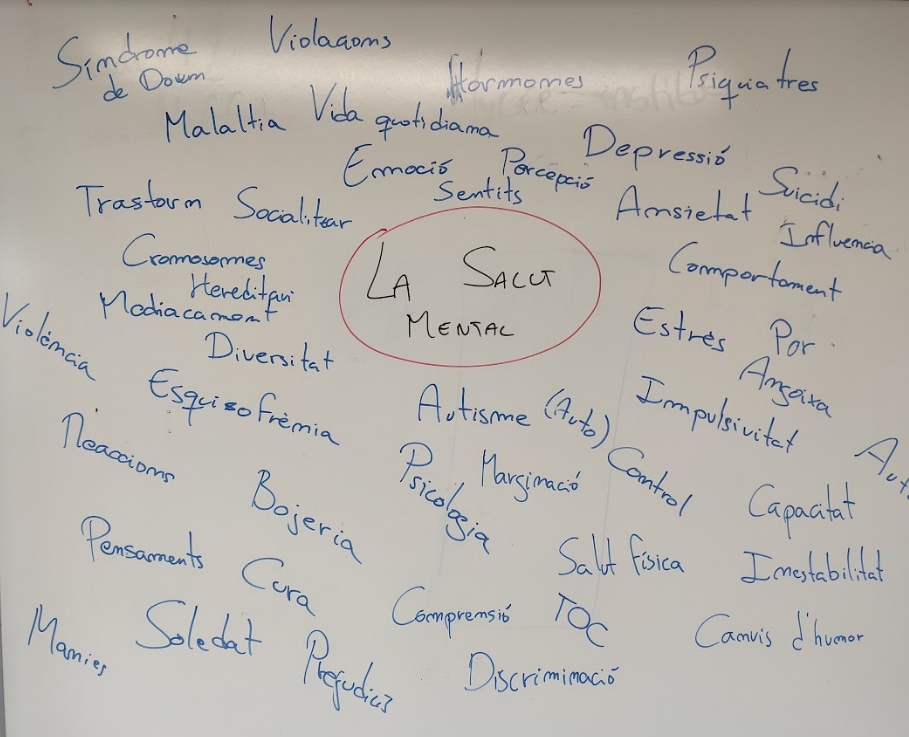 Violacions
Síndrome
de Down
Hormones
Psiquiatres
Malaltia
Vida quotidiana
Depressió
Emoció
Percepció
Sentits
Suicidi
Trastorn
Socialitzar
Ansietat
Influencia
Cromosomes
Hereditari
Medicament
LA SALUT
MENTAL
Comportament
Violència
Diversitat
Estrés
Por
Angoixa
Esquizofrènia
Autisme (Auto)
Impulsivitat
Reaccions
Bojeria
Psicologia
Marginació
Control
Capacitat
Pensaments
Cura
Salut física
Inestabilitat
Manies
Soledat
Comprensió
TOC
Canvis d'humor
Prejudicis
Discriminació